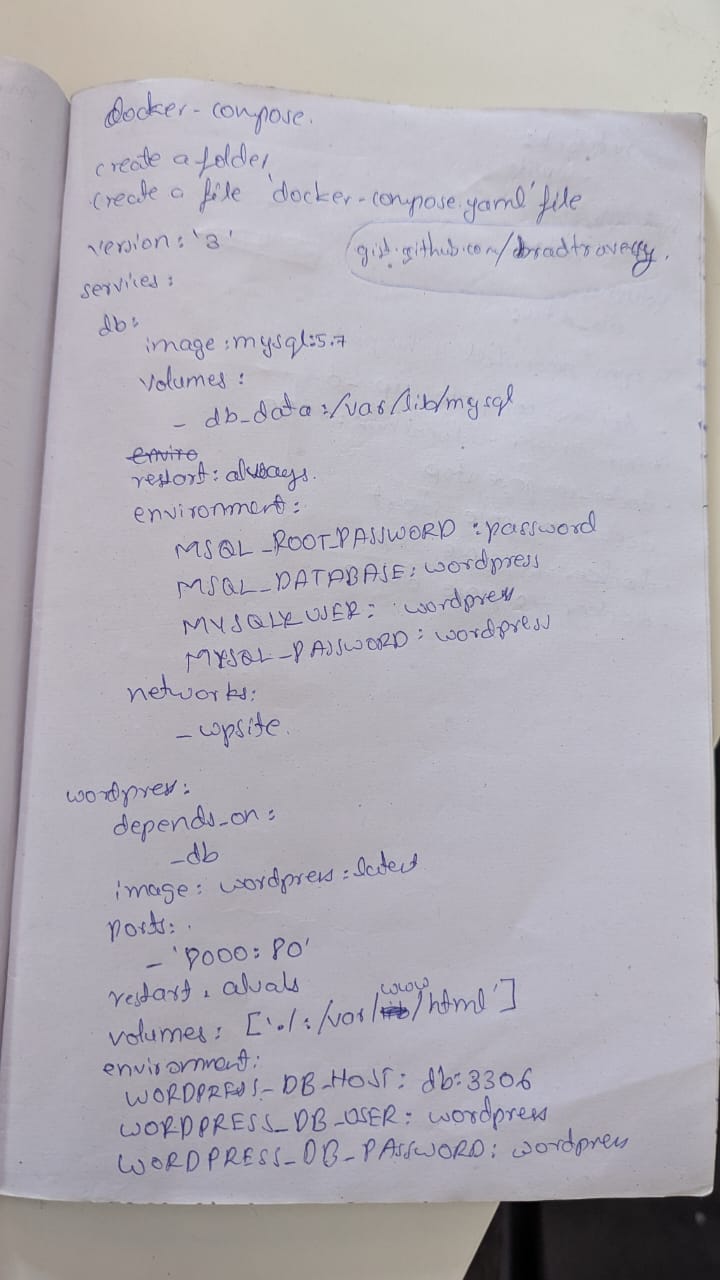 Docker-compose.
create a folder
create a file 'docker-compose.yaml' file
version: '3'
gist.github.com/bradtroversy.
services:
db:
image: mysql:5.7
volumes:
- db_data:/var/lib/mysql
enviro
restart: always.
environment:
MSQL_ROOT_PASSWORD: password
MSQL_DATABASE: wordpress
MYSQL_USER: wordpress
MYSQL_PASSWORD: wordpress
networks:
- wpsite.
wordpress:
depends_on:
- db
image: wordpress:latest
ports:
- '8000:80'
restart: alvals
volumes: ['./:/var/www/html']
environment:
WORDPRESS_DB_HOST: db:3306
WORDPRESS_DB_USER: wordpress
WORDPRESS_DB_PASSWORD: wordpress